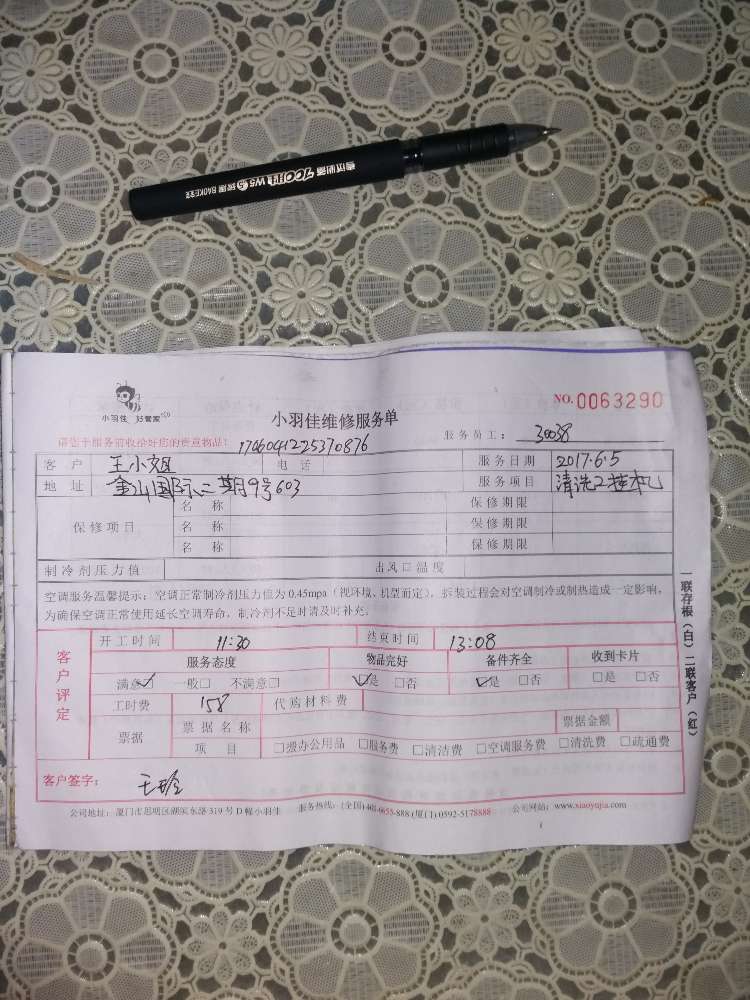 小羽佳 好管家
NO.0063290
小羽佳维修服务单
服务员工： 30038
请您于服务前收拾好您的贵重物品！
1706041225370876
客户 王小姐 电话 服务日期 2017.6.5
地址 金山国际二期9号603 服务项目 清洗2挂机
保修项目
名称 保修期限
名称 保修期限
名称 保修期限
制冷剂压力值 出风口温度
空调服务温馨提示：空调正常制冷剂压力值为0.45mpa（视环境、机型而定），拆装过程会对空调制冷或制热造成一定影响，
为确保空调正常使用延长空调寿命，制冷剂不足时请及时补充。
一联存根（白）二联客户（红）
客户评定
开工时间 11:30 结束时间 13:08
服务态度 物品完好 备件齐全 收到卡片
满意☑ 一般□ 不满意□ ☑是 □否 ☑是 □否 □是 □否
工时费 158 代购材料费
票据 票据名称 票据金额
项目 □搬办公用品 □服务费 □清洁费 □空调服务费 □清洗费 □疏通费
客户签字：
公司地址：厦门市思明区湖滨东路319号D幢小羽佳 服务热线：(全国)400-6655-888 (厦门)0592-5178888 公司网站：www.xiaoyujia.com